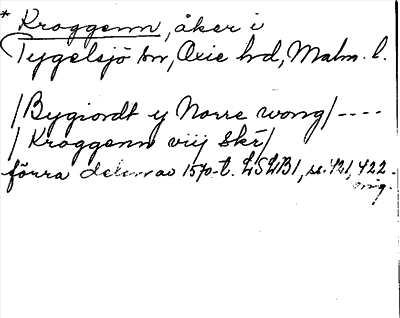 * Kroggenn, åker i
Tygelsjö sn, Oxie hd, Malm. l.
/Bygiordt y Norre wong/----
/Kroggenn viij Skr/
förra delen av 1570-t. LSLB1, ss. 421, 422.
orig.